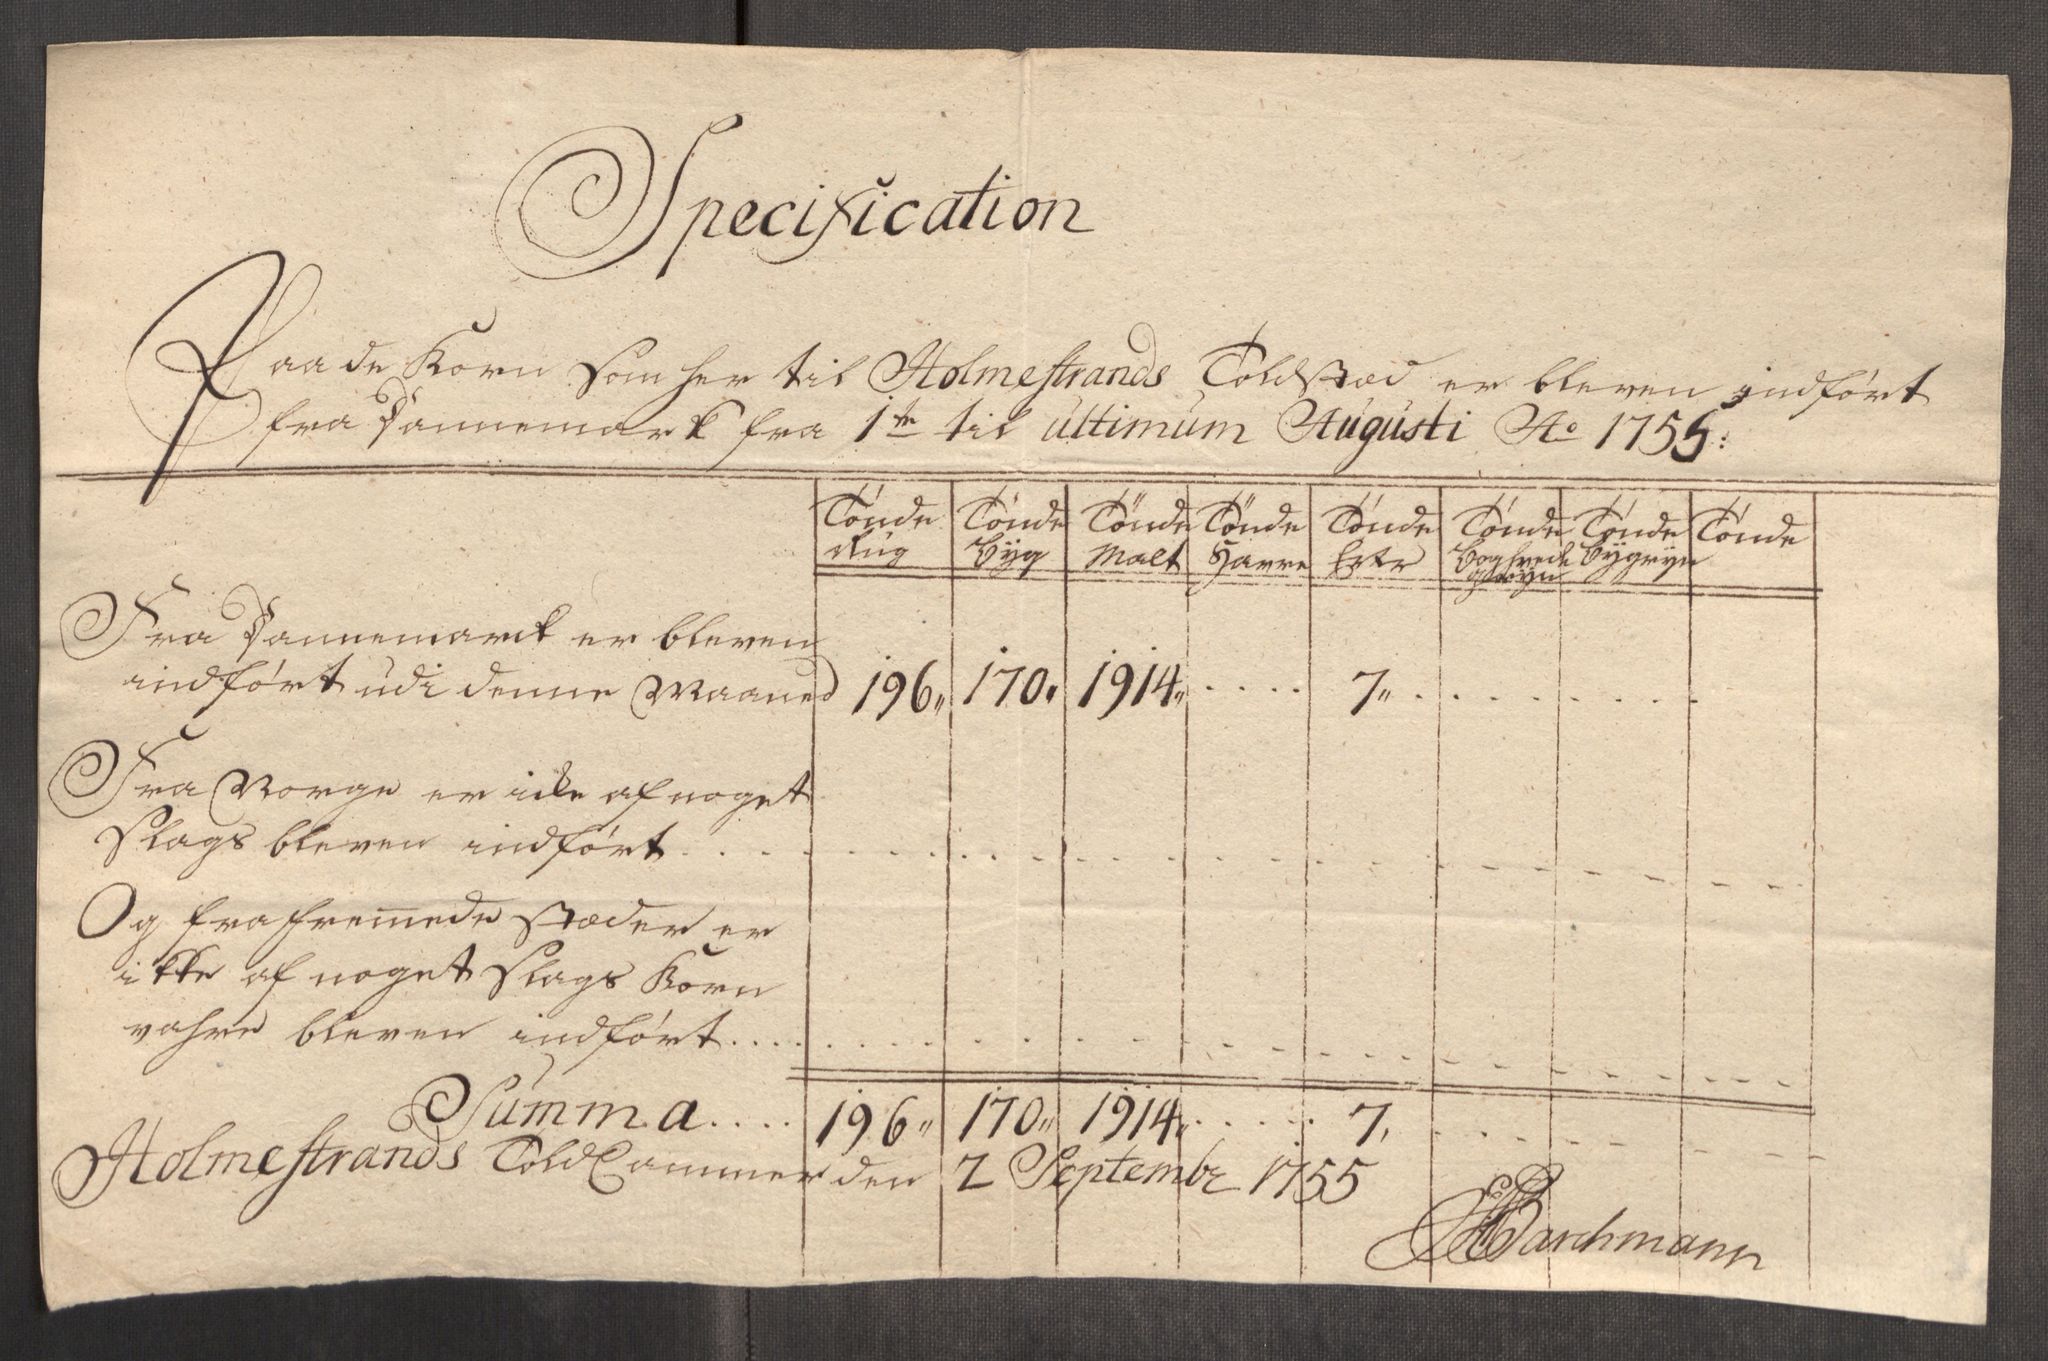 Specification
Paa de Korn som her til Holmestrands Toldstæd er bleven indført
fra Dannemark fra 1te til ultimum Augusti Ao 1755:
Tønde Rug | Tønde Byg | Tönde Malt | Tönde Havre | Tønde Erter | Tønde Boghvede gryn | Tønde Bygryn | Tønde
Fra Dannemarck er bleven
indført udi denne Maaned 196,, 170,, 1914,, . . . . 7,, . . . . . . . . .
Fra Norge er icke af noget
Slags bleven indført . . . .
Og fra fremmede stæder er
ikke af noget Slags Korn
vahre bleven indført . . . .
Summa . . . . 196,, 170,, 1914,, . . . . . 7,
Holmestrands Told Cammer den 2 Septembr 1755
Barchmann